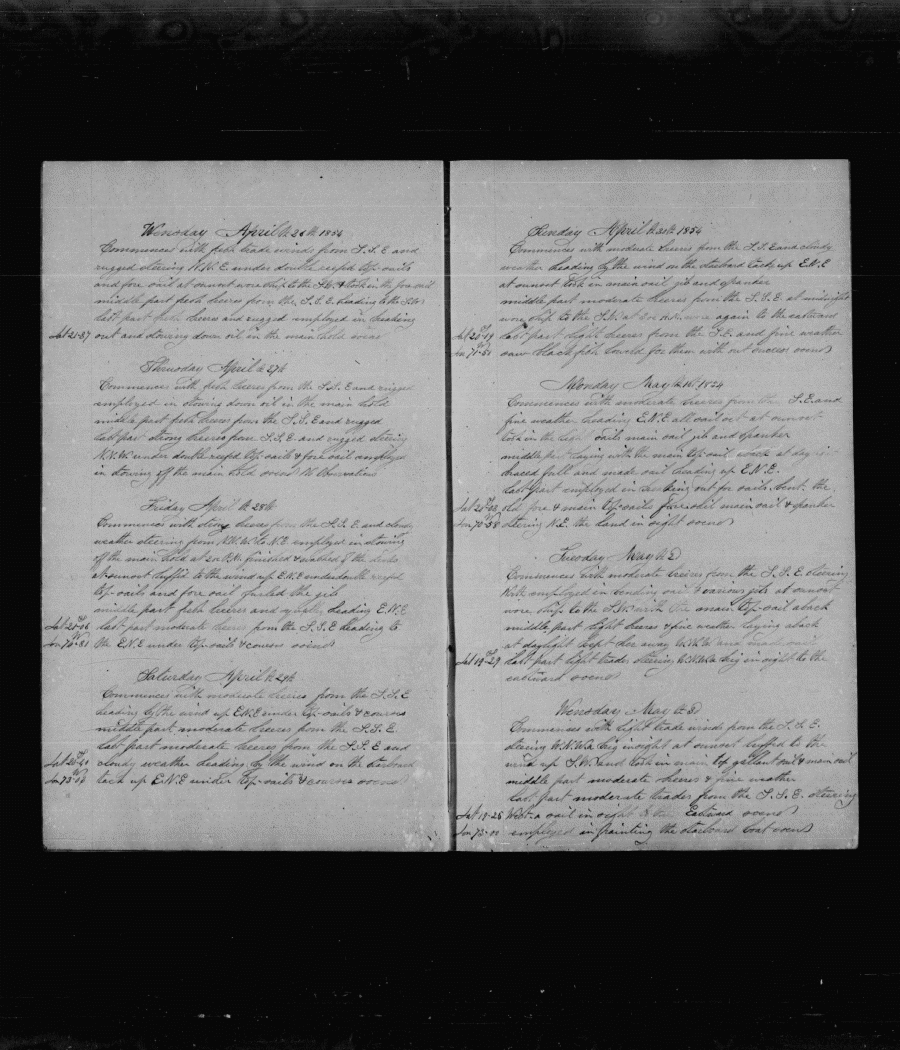 Wensday April th 26th 1854
Commences with fresh trade winds from S.S.E and
rugged steering N.N.E under double reefd top-sails
and fore sail at sunset wore ship to the S.W. & took in the fore sail
middle part fresh breezes from the S.S.E. heading to the S.W
last part fresh breezes and rugged employed in breaking
Lat 21-37 out and stowing down oil in the main hold soends
Thursday April th 27th
Commences with fresh breezes from the S.S.E and rugged
employed in stowing down oil in the main hold
middle part fresh breezes from the S.S.E and rugged
last part strong breezes from S.S.E and rugged steering
N.N.W under double reefd top-sails & fore sail employed
in stowing off the main hold soends No Observation
Friday April th 28th
Commences with strong breezes from the S.S.E and cloudy
weather steering from N.N.W. to N.E employed in stowing
off the main hold at P.M. finished & washed of the decks
At sunset luffed to the wind up E.N.E under double reefd
top-sails and fore sail furled the jib
middle part fresh breezes and heading E.N.E
Lat 20- last part moderate breezes from the S.S.E heading to
Lon 74- the E.N.E under top-sails & courses soends
Saturday April th 29th
Commences with moderate breezes from the S.S.E
heading by the wind up E.N.E under top-sails & courses
middle part moderate breezes from the S.S.E.
last part moderate breezes from the S.S.E and
Lat 20- cloudy weather heading by the wind on the starboard
Lon 73- tack up E.N.E under top-sails & courses soends
Sunday April th 30th 1854
Commences with moderate breezes from the S.S.E and cloudy
weather heading by the wind on the starboard tack up E.N.E
at sunset took in main sail jib and spanker
middle part moderate breezes from the S.S.E at midnight
wore ship to the S.W. at wore again to the eastward
Lat 20-19 last part light breezes from the S.E. and fine weather
Lon 71- saw black fish lowerd for them with out success soends
Monday May th 1st 1854
Commences with moderate breezes from the S.E and
fine weather heading E.N.E all sail out at sunset
took in the light sails main sail jib and spanker
middle part laying with the main top-sail aback at day
braced full and made sail heading up E.N.E.
last part employed in out for sails bent the
Lat 20- old fore & main top-sails fore sail main sail & spanker
Lon 70-58 steering N.E. the land in sight soends
Tuesday May th 2
Commences with moderate breezes from the S.S.E. steering
North employed in mending sail & various jobs at sunset
wore ship to the S.W. with the main top-sail aback
middle part light breezes & fine weather laying aback
at daylight kept her away W.N.W and
Lat 19-29 last part light trades steering W.N.W. a brig in sight to the
eastward soends
Wensday May th 3d
Commences with light trade winds from the S.S.E.
steering W.N.W. a brig in sight at sunset luffed to the
wind up S.W. and took in main top gallant sail & main sail
middle part moderate breezes & fine weather
last part moderate trades from the S.S.E. steering
Lat 19-26 West a sail in sight to the Eastward soends
Lon 72-00 employed in painting the starboard boat soends